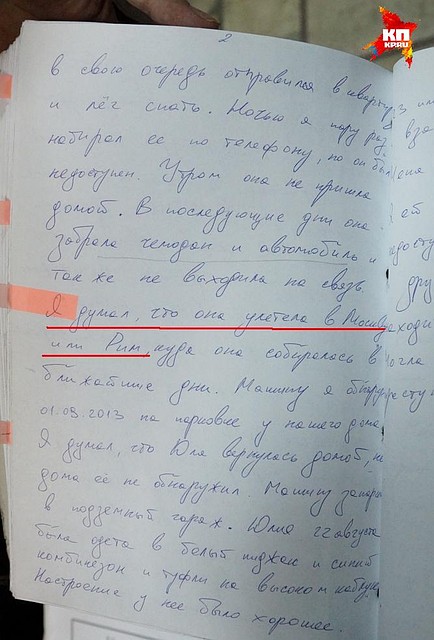 КП
KP.RU
2
в свою очередь отправился в квартиру
и лёг спать. Ночью я пару раз
набирал её по телефону, но он был
недоступен. Утром она не пришла
домой. В последующие дни она
забрала чемодан и автомобиль и
так же не выходила на связь.
Я думал, что она улетела в Москву
или Рим, куда она собиралась в
ближайшие дни. Машину я обнаружил
01.09.2013 на парковке у нашего дома.
Я думал, что Юля вернулась домой, но
дома её не обнаружил. Машину запарковал
в подземный гараж. Юлия 22 августа
была одета в белый пиджак и синий
комбинезон и туфли на высоком каблуке.
Настроение у неё было хорошее.